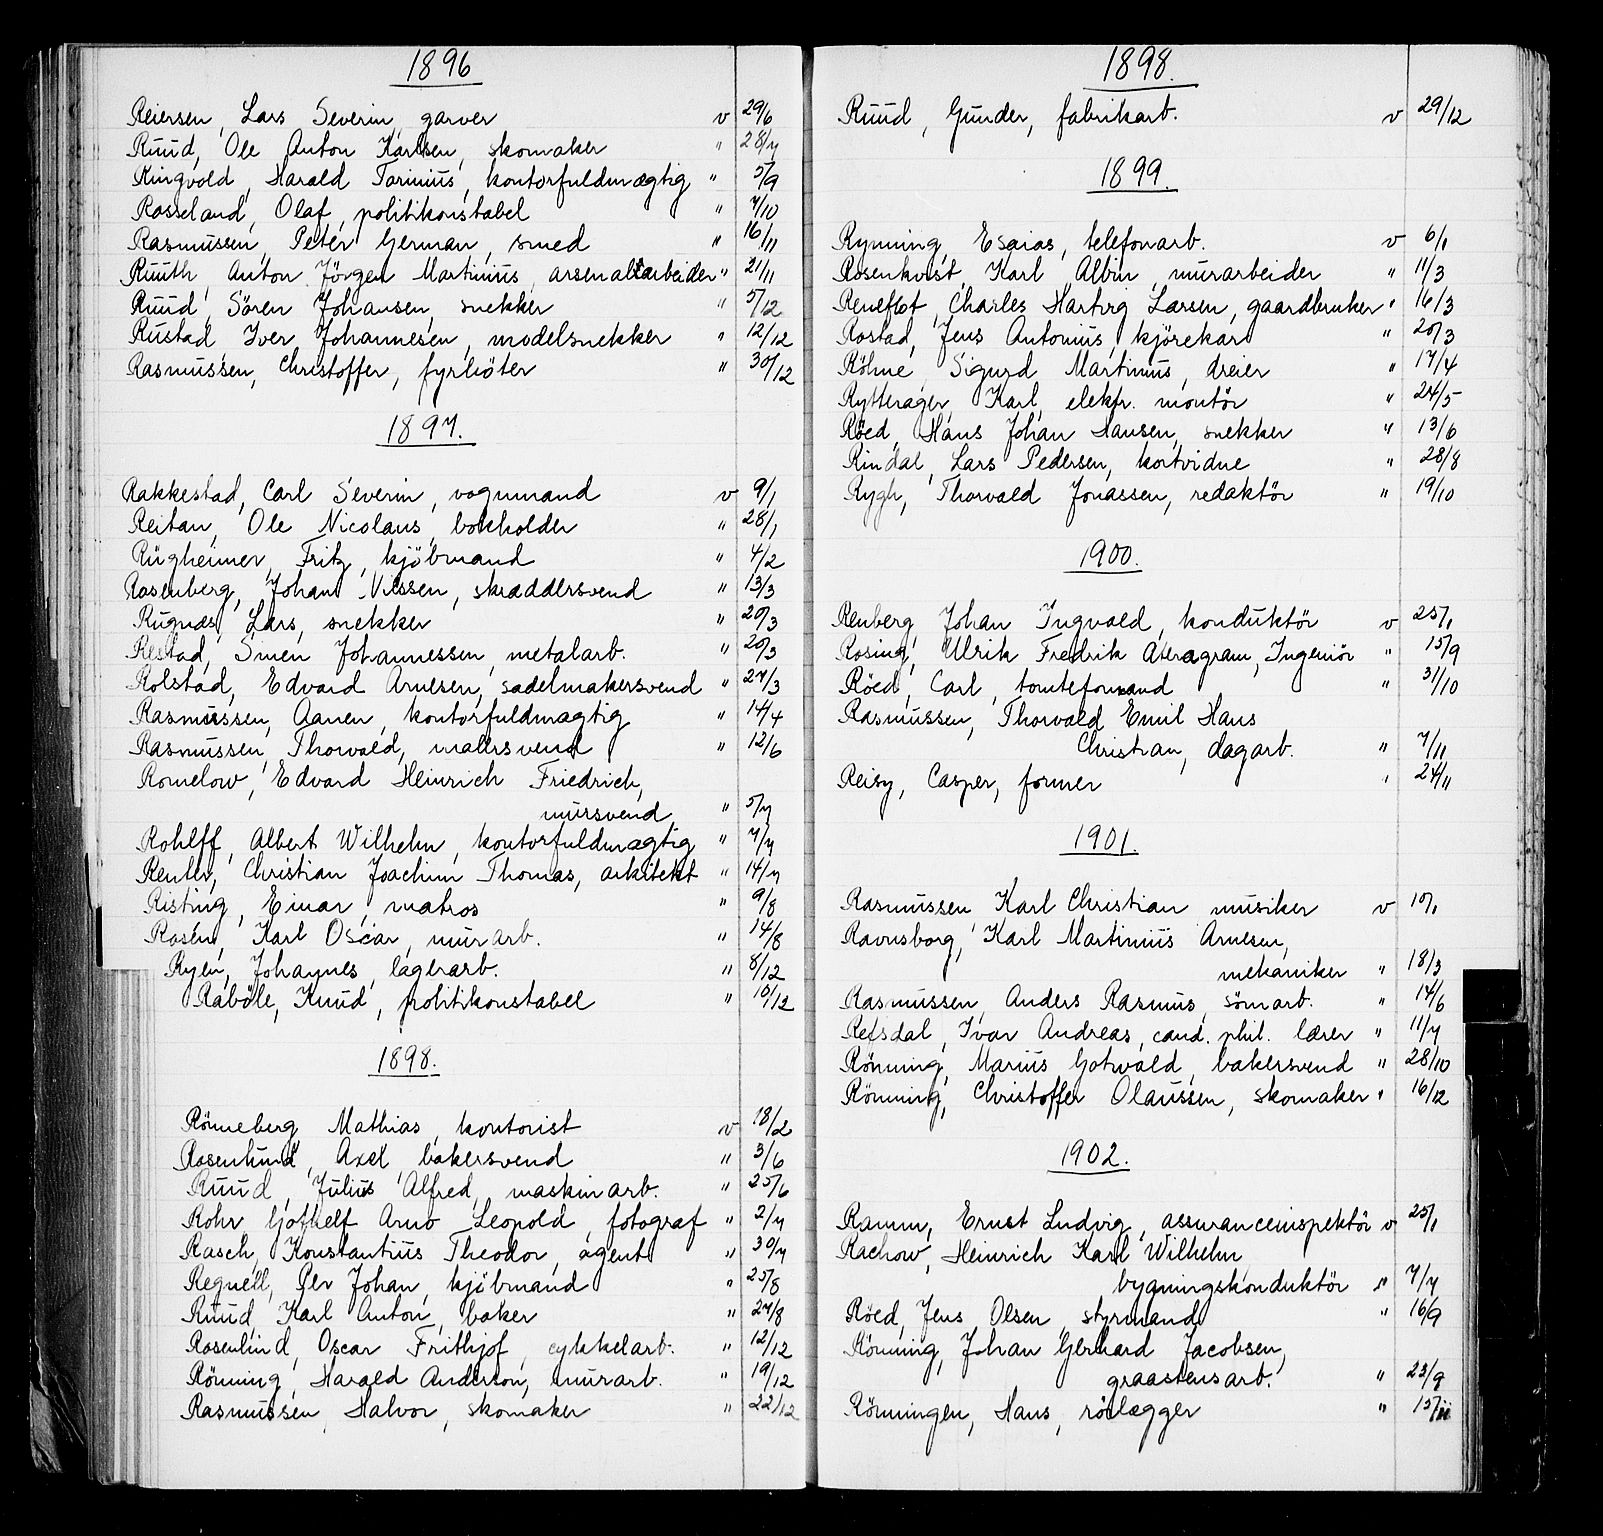 1896
Reiersen, Lars Severin, garver v 29/6
Ruud, Ole Anton Karlsen, skomaker " 28/7
Ringvold, Harald Torinius, kontorfuldmægtig " 5/9
Rosseland, Olaf, politikonstabel " 7/10
Rasmussen, Peter German, smed " 16/11
Ruuth, Anton Jörgen Martinius, arsenalarbeider " 21/11
Ruud, Sören Johansen, snekker " 5/12
Rustad Iver Johannesen, modelsnekker " 12/12
Rasmussen, Christoffer, fyrböter " 30/12
1897.
Rakkestad, Carl Severin, vognmand v 9/1
Reitan, Ole Nicolaus, bokholder " 28/1
Rügheimer, Fritz, kjöbmand " 4/2
Rosenberg, Johan Nilssen, skræddersvend " 13/3
Rugnæs, Lars, snekker " 20/3
Restad, Simen Johannessen, metalarb. " 20/3
Rolstad, Edvard Arnesen, sadelmakersvend " 27/3
Rasmussen, Aanen, kontorfuldmægtig " 14/4
Rasmussen, Thorvald, malersvend " 12/6
Romelow, Edvard Heinrich Friedrich,
mursvend " 5/7
Rohlff, Albert Wilhelm, kontorfuldmægtig " 7/7
Reuter, Christian Joachim Thomas, arkitekt " 14/7
Risting, Einar, matros " 9/8
Rosén, Karl Oscar, murarb. " 14/8
Ryen, Johannes, lagerarb. " 8/12
Raböle, Knud, politikonstabel " 10/12
1898.
Rönneberg Mathias, kontorist v 18/2
Rosenlund, Axel, bakersvend " 3/6
Ruud, Julius Alfred, maskinarb. " 25/6
Rohr, Gothelf Arno Leopold, fotograf " 2/7
Rasch, Konstantius Theodor, agent " 30/7
Regnell, Per Johan, kjöbmand " 25/8
Ruud, Karl Anton, baker " 27/8
Rosenlind, Oscar Frithjof, cykkelarb. " 12/12
Rönning, Harald Anderson, murarb. " 19/12
Rasmussen, Halvor, skomaker " 22/12
1898.
Ruud, Gunder, fabrikarb. v 29/12
1899.
Rynning, Esaias, telefonarb. v 6/1
Rosenkvist, Karl Albin, murarbeider " 11/3
Reneflot, Charles Hartvig Larsen, gaardbruker " 16/3
Rostad, Jens Antonius, kjörekar " 20/3
Röhne, Sigurd Martinius, dreier " 17/4
Rytterager, Karl, elektr. montör " 24/5
Röed, Hans Johan Hansen, snekker " 13/6
Rindal, Lars Pedersen, kortvidne " 28/8
Rygh, Thorvald Jonassen, redaktör " 19/10
1900.
Renberg, Johan Ingvald, konduktör v 25/1
Rosing, Ulrik Fredrik Ateragram, Ingeniör " 15/9
Röed, Carl, tomteformand " 31/10
Rasmussen, Thorvald Emil Hans
Christian, dagarb. " 7/11
Reisy, Casper, former " 24/11
1901.
Rasmussen, Karl Christian musiker v 10/1
Ravnsborg, Karl Martinius Arnesen,
mekaniker " 18/3
Rasmussen, Anders Rasmus, sömarb. " 14/6
Refsdal, Ivar Andreas, cand. phil. lærer " 11/7
Rönning, Marius Gotwald, bakersvend " 28/10
Rönning, Christoffer Olaussen, skomaker " 16/12
1902.
Ramm, Ernst Ludvig, assuranceinspektör v 25/1
Rachow, Heinrich Karl Wilhelm
bygningskonduktör " 7/7
Röed, Jens Olsen, styrmand " 16/9
Rönning, Johan Gerhard Jacobsen,
graastensarb. " 23/9
Rönningen, Hans, rörlægger " 15/11